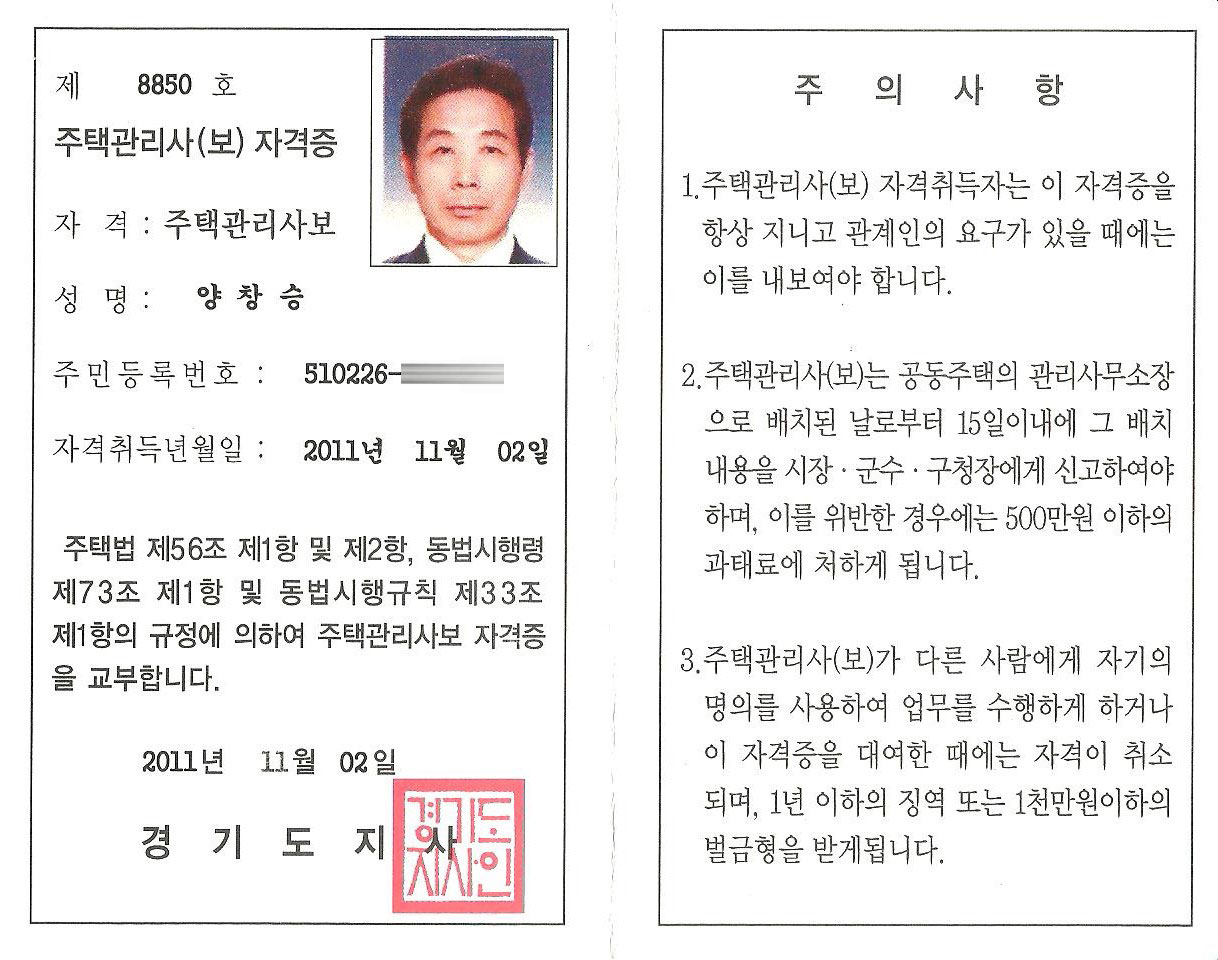 제 8850 호
주택관리사(보) 자격증
자 격 : 주택관리사보
성 명 : 양 창 승
주민등록번호 : 510226-
자격취득년월일 : 2011년 11월 02일
주택법 제56조 제1항 및 제2항, 동법시행령
제73조 제1항 및 동법시행규칙 제33조
제1항의 규정에 의하여 주택관리사보 자격증
을 교부합니다.
2011년 11월 02일
경 기 도 지 사
경기도
지사인
주 의 사 항
1.주택관리사(보) 자격취득자는 이 자격증을
항상 지니고 관계인의 요구가 있을 때에는
이를 내보여야 합니다.
2.주택관리사(보)는 공동주택의 관리사무소장
으로 배치된 날로부터 15일이내에 그 배치
내용을 시장 · 군수 · 구청장에게 신고하여야
하며, 이를 위반한 경우에는 500만원 이하의
과태료에 처하게 됩니다.
3.주택관리사(보)가 다른 사람에게 자기의
명의를 사용하여 업무를 수행하게 하거나
이 자격증을 대여한 때에는 자격이 취소
되며, 1년 이하의 징역 또는 1천만원이하의
벌금형을 받게됩니다.